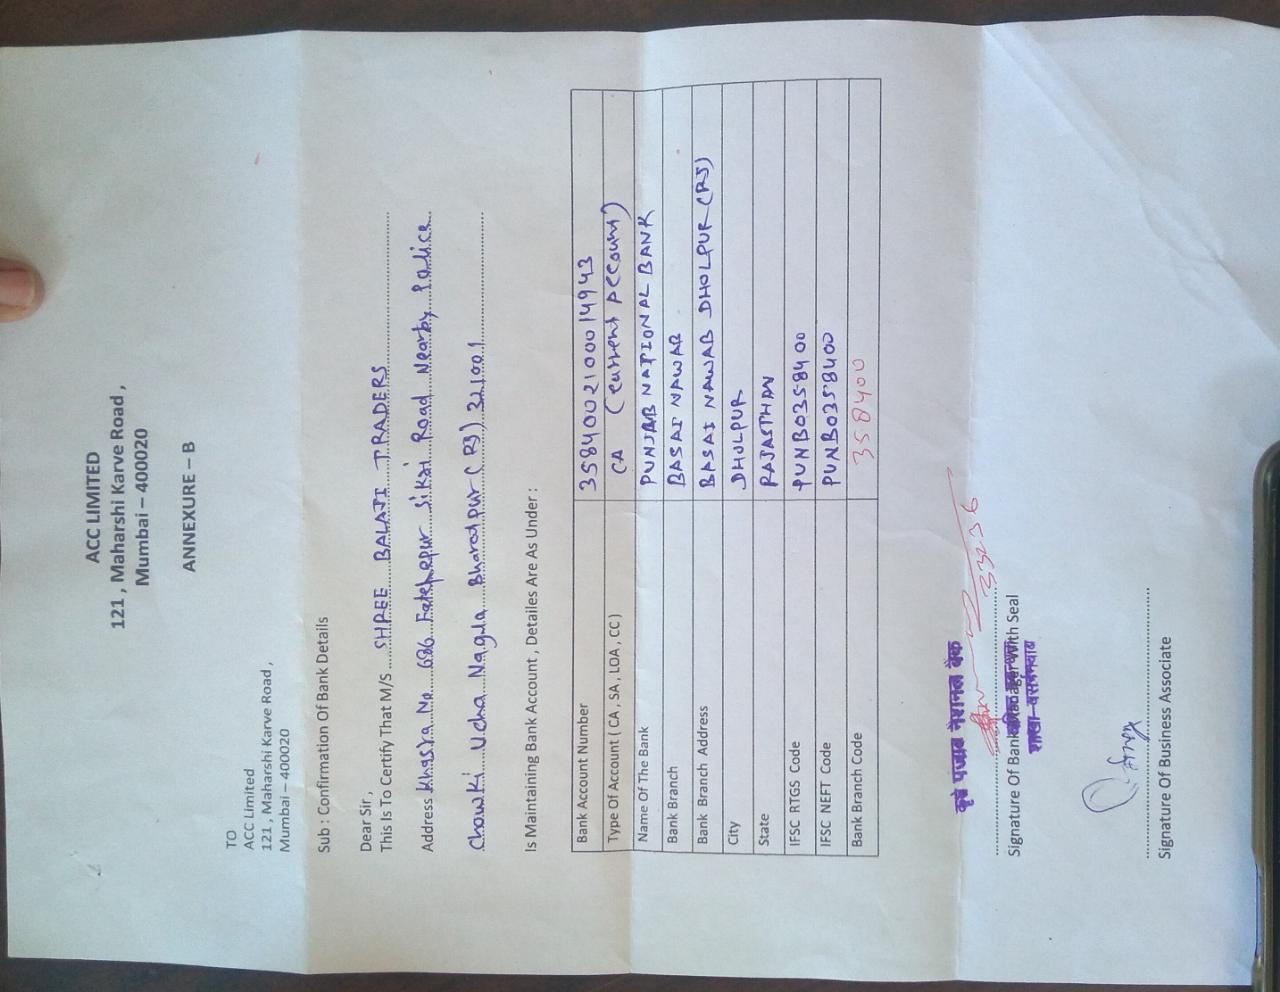 ACC LIMITED
121 , Maharshi Karve Road ,
Mumbai – 400020
ANNEXURE – B
TO
ACC Limited
121 , Maharshi Karve Road ,
Mumbai – 400020
Sub : Confirmation Of Bank Details
Dear Sir ,
This Is To Certify That M/S SHREE BALAJI TRADERS
Address Khasra No 686 Fatehpur Sikri Road Nearby Police
Chowki Ucha Nagla Bharatpur (RJ) 321001
Is Maintaining Bank Account , Detailes Are As Under :
Bank Account Number 3584002100014943
Type Of Account ( CA , SA , LOA , CC ) CA (Current Account)
Name Of The Bank PUNJAB NATIONAL BANK
Bank Branch BASAI NAWAB
Bank Branch Address BASAI NAWAB DHOLPUR (RJ)
City DHOLPUR
State RAJASTHAN
IFSC RTGS Code PUNB0358400
IFSC NEFT Code PUNB0358400
Bank Branch Code 358400
कृते पंजाब नैशनल बैंक
33236
Signature Of Bank Manager With Seal
शाखा-बसईनवाब
Signature Of Business Associate